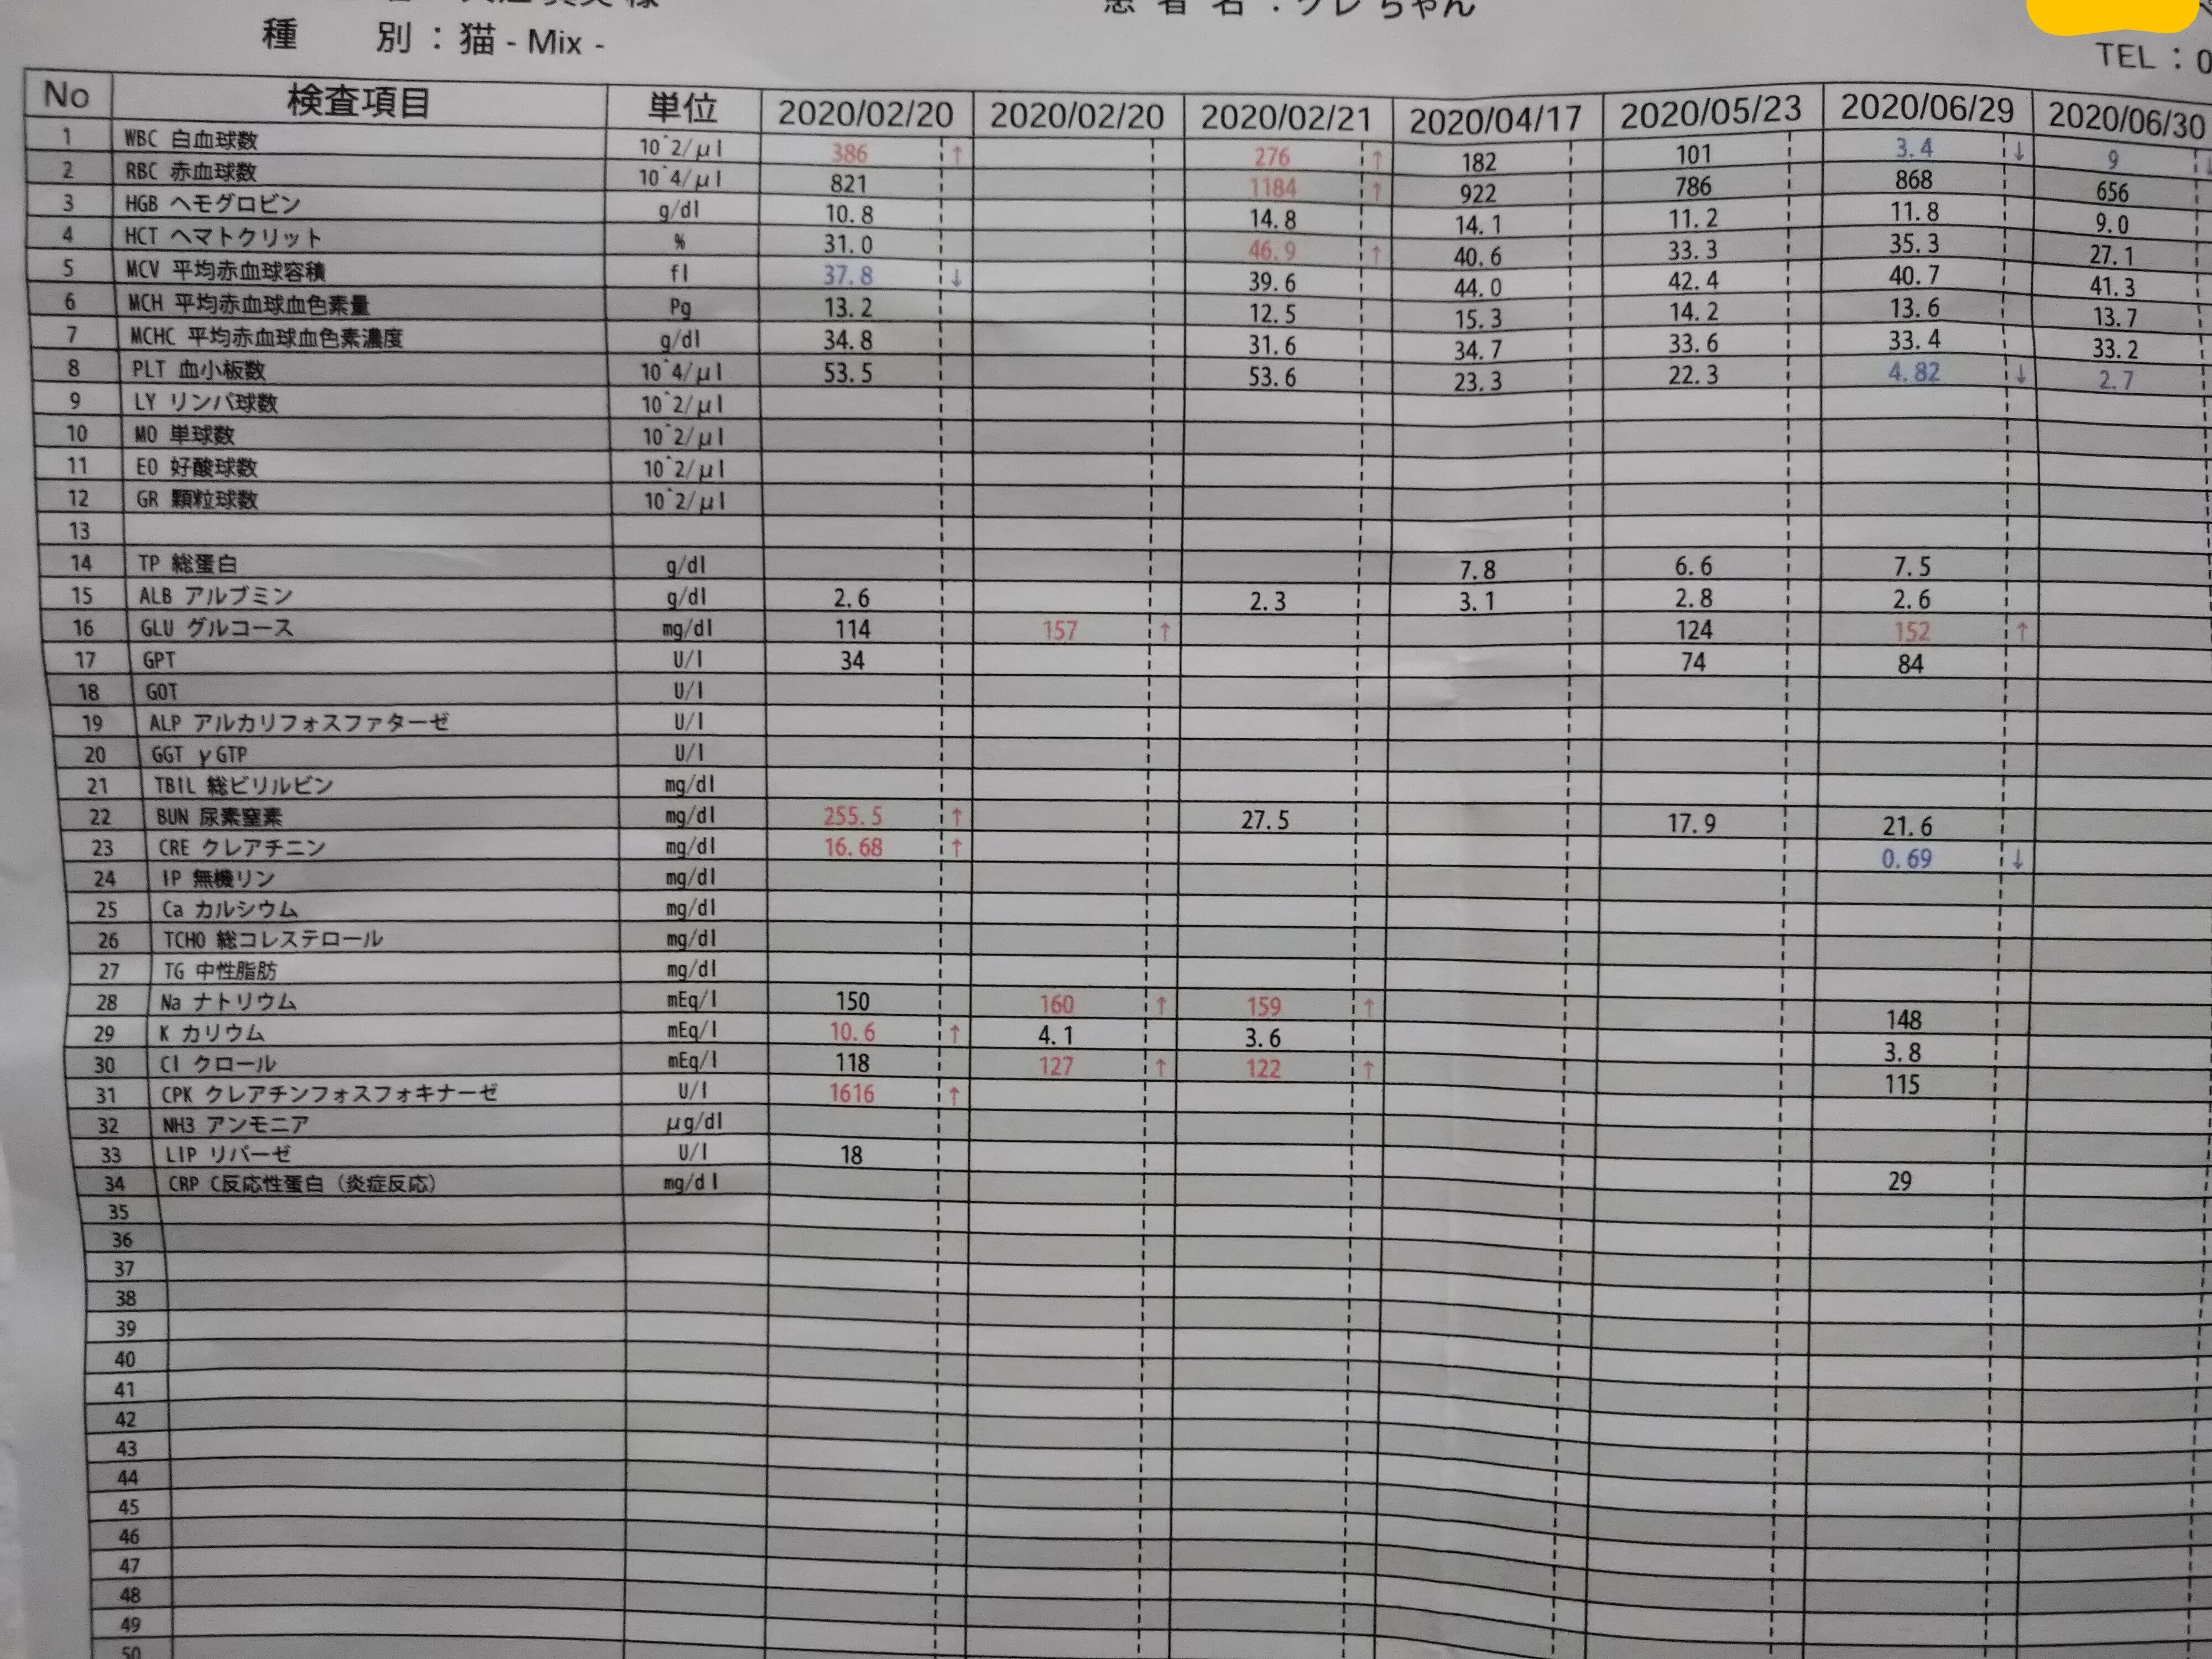 患 者 名 : クレちゃん
種 別 : 猫 - Mix -
TEL : 0
No 検査項目 単位 2020/02/20 2020/02/20 2020/02/21 2020/04/17 2020/05/23 2020/06/29 2020/06/30
1 WBC 白血球数 10^2/μl 386 ↑ 276 ↑ 182 101 3.4 ↓ 9 ↓
2 RBC 赤血球数 10^4/μl 821 1184 ↑ 922 786 868 656
3 HGB ヘモグロビン g/dl 10.8 14.8 14.1 11.2 11.8 9.0
4 HCT ヘマトクリット % 31.0 46.9 ↑ 40.6 33.3 35.3 27.1
5 MCV 平均赤血球容積 fl 37.8 ↓ 39.6 44.0 42.4 40.7 41.3
6 MCH 平均赤血球血色素量 Pg 13.2 12.5 15.3 14.2 13.6 13.7
7 MCHC 平均赤血球血色素濃度 g/dl 34.8 31.6 34.7 33.6 33.4 33.2
8 PLT 血小板数 10^4/μl 53.5 53.6 23.3 22.3 4.82 ↓ 2.7
9 LY リンパ球数 10^2/μl
10 MO 単球数 10^2/μl
11 EO 好酸球数 10^2/μl
12 GR 顆粒球数 10^2/μl
13
14 TP 総蛋白 g/dl 7.8 6.6 7.5
15 ALB アルブミン g/dl 2.6 2.3 3.1 2.8 2.6
16 GLU グルコース mg/dl 114 157 ↑ 124 152 ↑
17 GPT U/l 34 74 84
18 GOT U/l
19 ALP アルカリフォスファターゼ U/l
20 GGT γGTP U/l
21 TBIL 総ビリルビン mg/dl
22 BUN 尿素窒素 mg/dl 255.5 ↑ 27.5 17.9 21.6
23 CRE クレアチニン mg/dl 16.68 ↑ 0.69 ↓
24 IP 無機リン mg/dl
25 Ca カルシウム mg/dl
26 TCHO 総コレステロール mg/dl
27 TG 中性脂肪 mg/dl
28 Na ナトリウム mEq/l 150 160 ↑ 159 ↑ 148
29 K カリウム mEq/l 10.6 ↑ 4.1 3.6 3.8
30 Cl クロール mEq/l 118 127 ↑ 122 ↑ 115
31 CPK クレアチンフォスフォキナーゼ U/l 1616 ↑
32 NH3 アンモニア μg/dl
33 LIP リパーゼ U/l 18
34 CRP C反応性蛋白(炎症反応) mg/dl 29
35
36
37
38
39
40
41
42
43
44
45
46
47
48
49
50